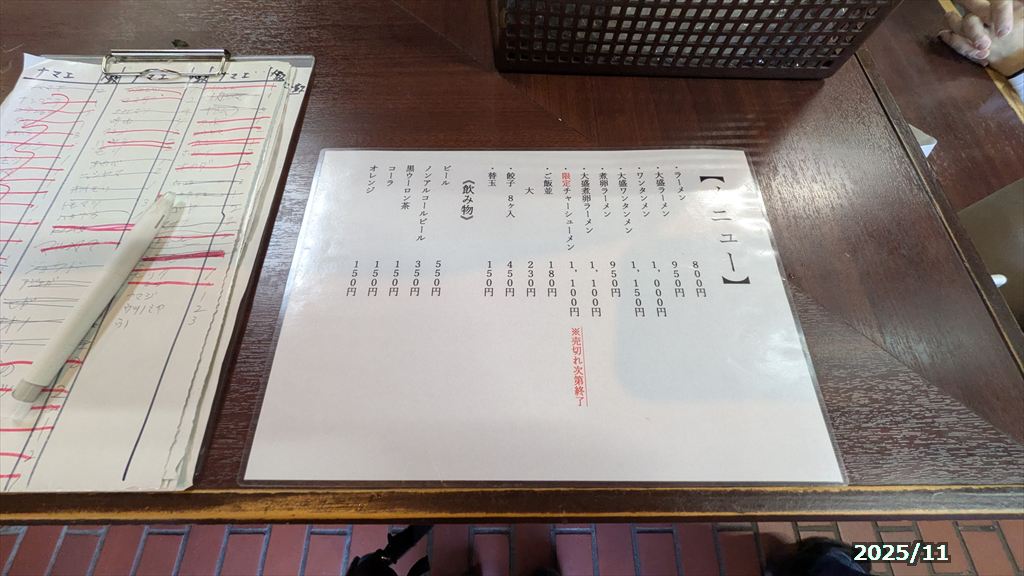 【メニュー】
・ラーメン 800円
・大盛ラーメン 950円
・ワンタンメン 1,000円
・大盛ワンタンメン 1,150円
・煮卵ラーメン 950円
・大盛煮卵ラーメン 1,100円
・限定チャーシューメン 1,100円 ※売切れ次第終了
・ご飯並 180円
大 230円
・餃子 8ヶ入 450円
・替玉 150円
《飲み物》
ビール 550円
ノンアルコールビール 350円
黒ウーロン茶 150円
コーラ 150円
オレンジ 150円
ナマエ
ナマエ
ナマエ
2025/11